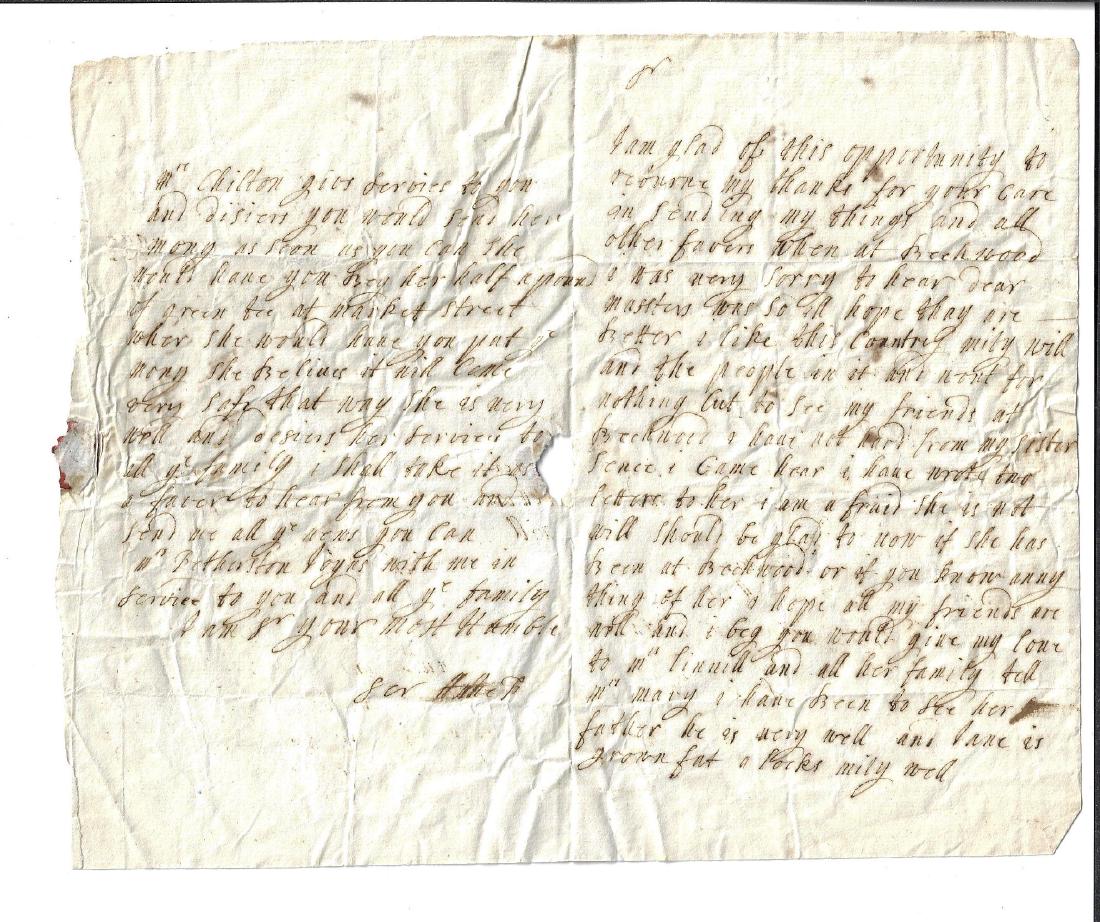 Sr
I am glad of this opportunity to
retourne my thanks for your Care
in sending my things and all
other favers when at Beechwood
i was very sorry to hear dear
massters was so ill hope thay are
Better i like this Country mity will
and the people in it and wont for
nothing but to see my friends at
Beechwood i have not hard from my sister
sence i Came hear i have wrote two
letters to her i am a fraid she is not
will should be glad to now if she has
Been at Bechwood or if you know anny
thing of her i hope all my friends are
will and i beg you would give my love
to mrs Linnill and all her family tell
mrs mary i have Been to see her
father he is very well and Jane is
grown fat a locks mity well
mrs Chilton givs services to you
and disiers you would send her
mony as soon as you can she
would have you Bey her half a pound
of green tee at market street
wher she would have you put ye
mony she Belives it will Come
very safe that way she is very
well and desiers her service to
all ye family i shall take it as
a faver to hear from you and
send me all ye nens you can
mrs Betherston Joyns with me in
service to you and all ye family
I am Sr your most Humble
ser